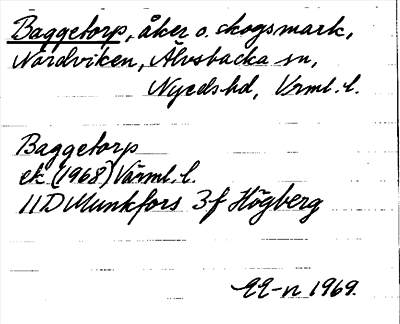 Baggetorp, åker o. skogsmark,
Nordviken, Älvsbacka sn,
Nyeds hd, Vrml. l.
Baggetorp
ek (1968) Värml. l.
11D Munkfors 3f Högberg
1969.